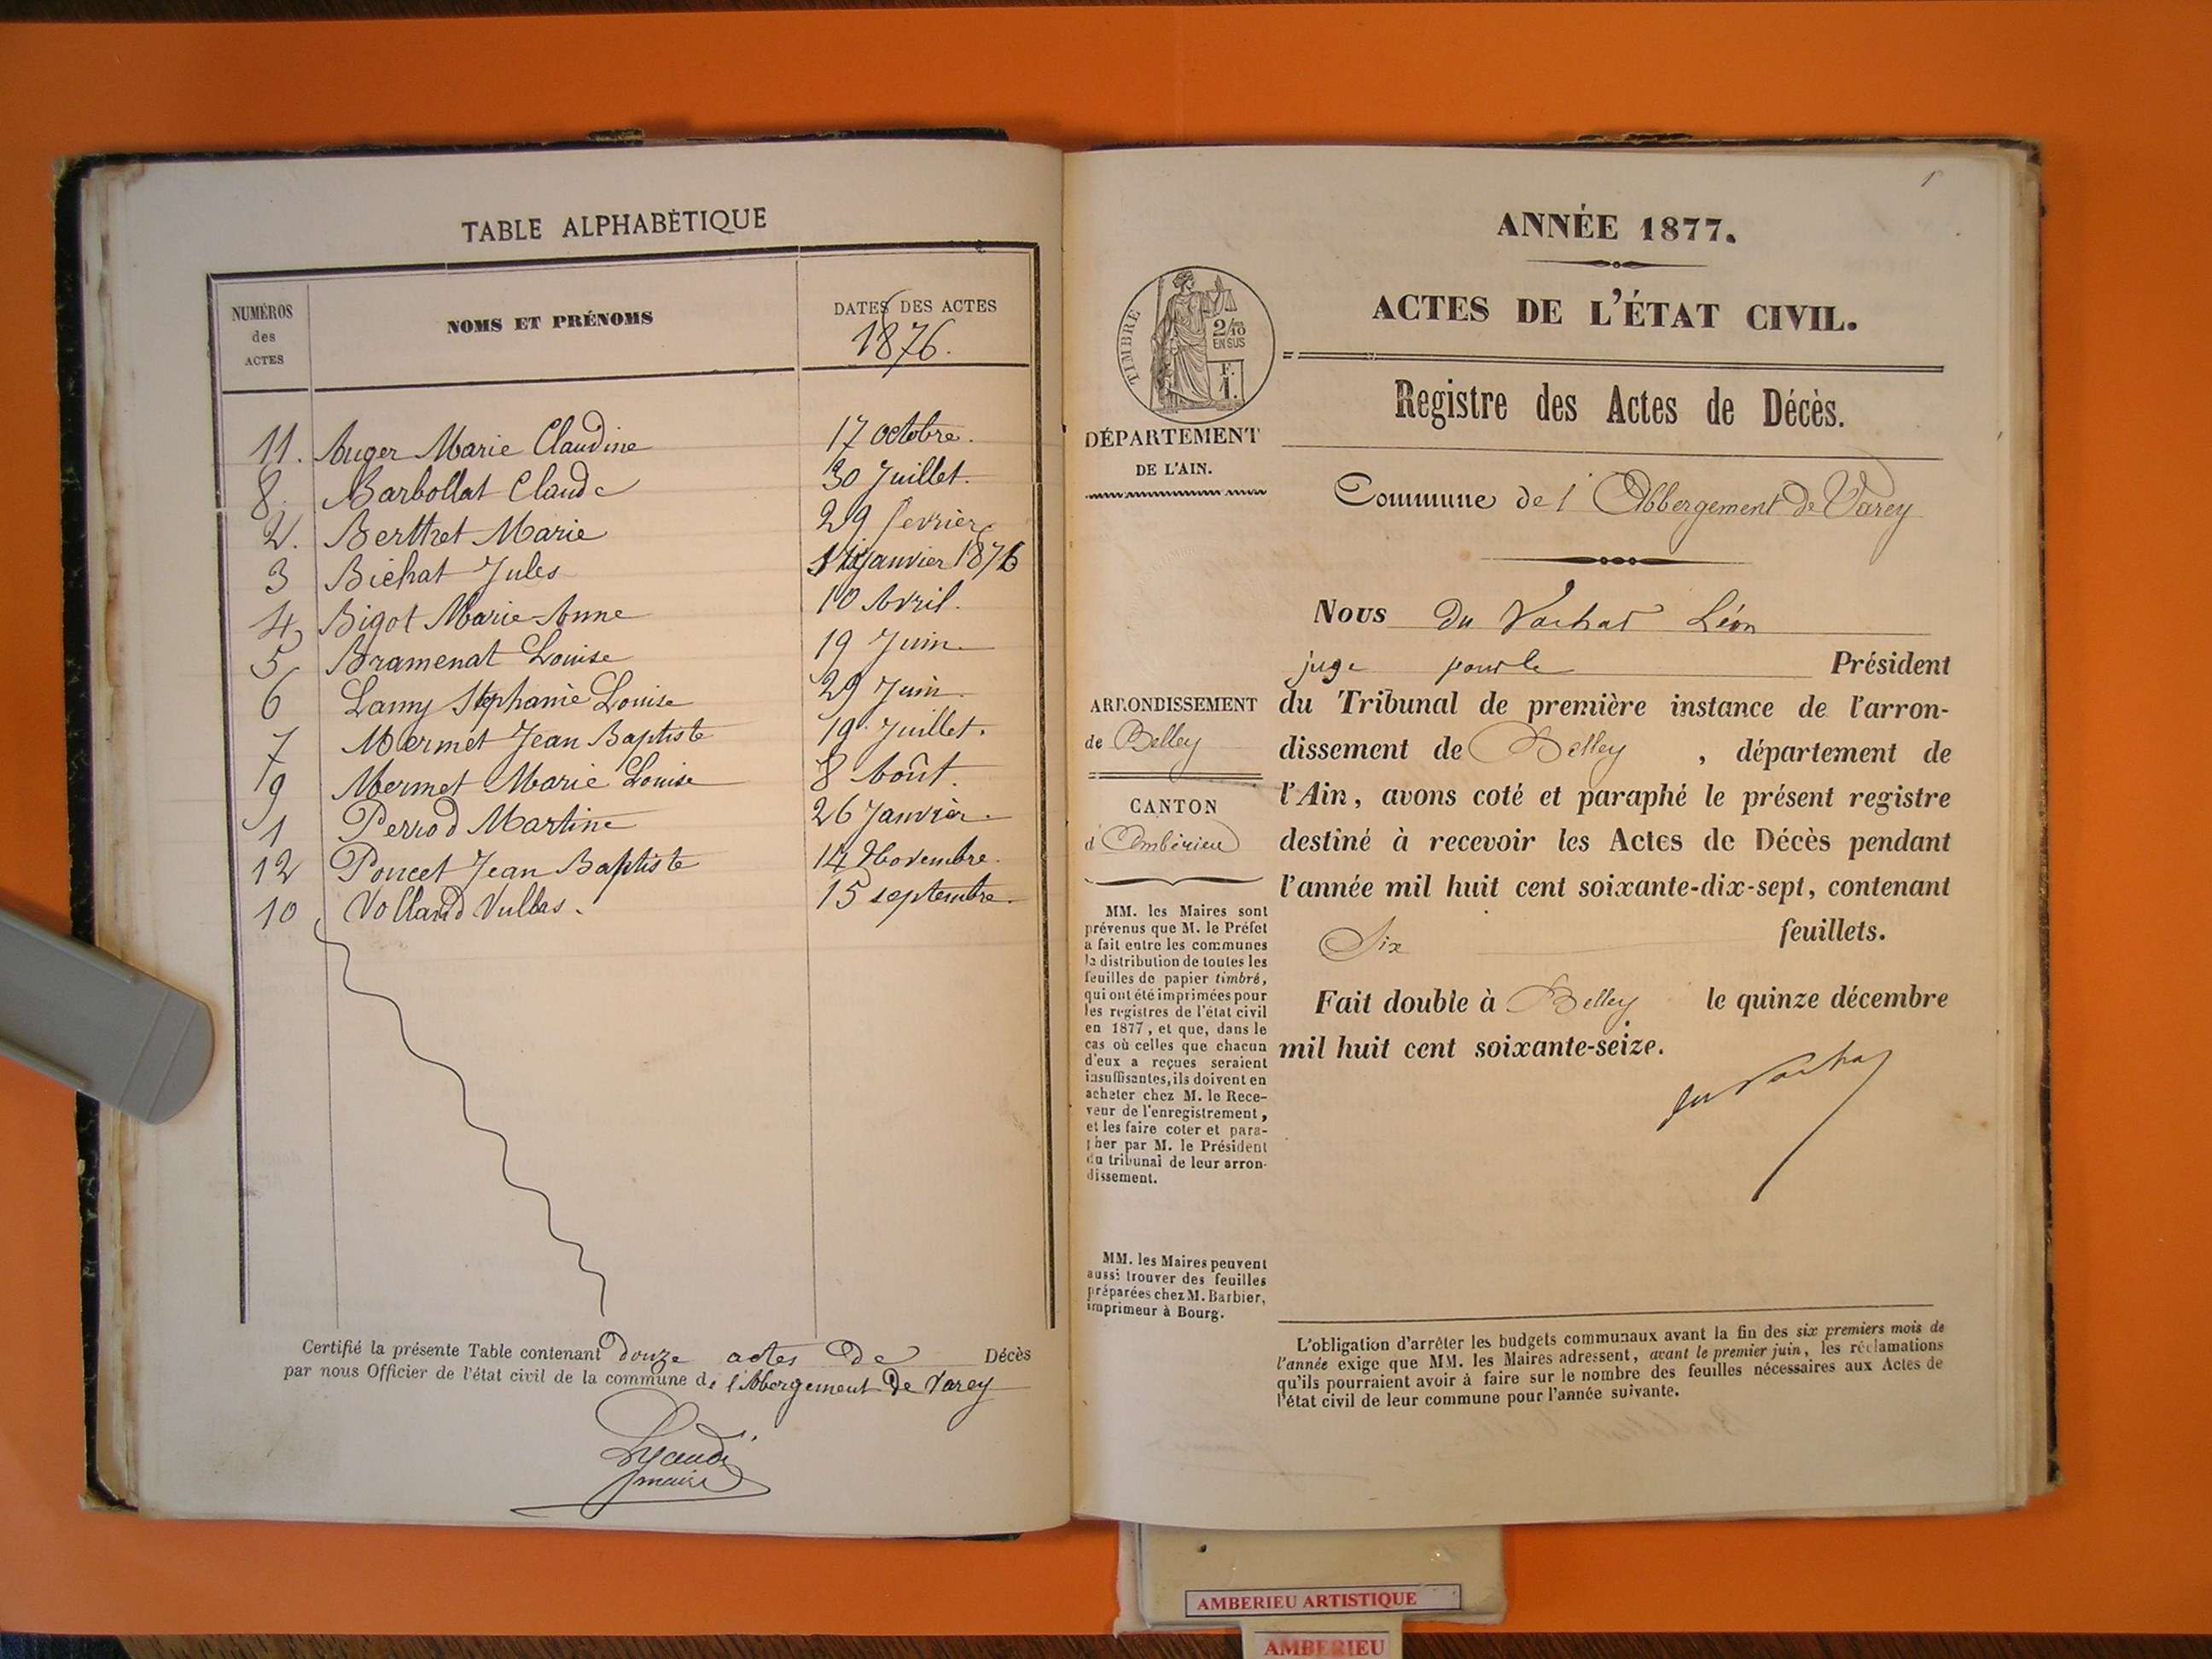 TABLE ALPHABÉTIQUE
NUMÉROS des ACTES
NOMS ET PRÉNOMS
DATES DES ACTES
1876.
11. Auger Marie Claudine 17 octobre.
8. Barbollat Claude 30 Juillet.
2. Berthet Marie 29 fevrier
3 Bichat Jules janvier 1876
4 Bigot Marie Anne 10 Avril.
5 Bramenat Louise 19 Juin
6 Lamy Stéphanie Louise 29 Juin.
7 Mermet Jean Baptiste 19 Juillet.
9 Mermet Marie Louise 8 Août.
1 Perrod Martine 26 Janvier.
12 Poncet Jean Baptiste 14 Novembre.
10 Volland Vulbas. 15 septembre.
Certifié la présente Table contenant douze actes de Décès
par nous Officier de l'état civil de la commune de l'Abergement de Varey
maire
1
ANNÉE 1877.
ACTES DE L'ÉTAT CIVIL.
Registre des Actes de Décès.
TIMBRE
2/10 EN SUS
F. 1.
DÉPARTEMENT
DE L'AIN.
Commune de l'Abbergement de Varey
Nous du Vachat Léon
juge pour le Président
du Tribunal de première instance de l'arron-
dissement de Belley, département de
l'Ain, avons coté et paraphé le présent registre
destiné à recevoir les Actes de Décès pendant
l'année mil huit cent soixante-dix-sept, contenant
Six feuillets.
Fait double à Belley le quinze décembre
mil huit cent soixante-seize.
du Vachat
ARRONDISSEMENT
de Belley
CANTON
d'Ambérieu
MM. les Maires sont
prévenus que M. le Préfet
a fait entre les communes
la distribution de toutes les
feuilles de papier timbré,
qui ont été imprimées pour
les registres de l'état civil
en 1877, et que, dans le
cas où celles que chacun
d'eux a reçues seraient
insuffisantes, ils doivent en
acheter chez M. le Rece-
veur de l'enregistrement,
et les faire coter et para-
pher par M. le Président
du tribunal de leur arron-
dissement.
MM. les Maires peuvent
aussi trouver des feuilles
préparées chez M. Barbier,
imprimeur à Bourg.
L'obligation d'arrêter les budgets communaux avant la fin des six premiers mois de
l'année exige que MM. les Maires adressent, avant le premier juin, les réclamations
qu'ils pourraient avoir à faire sur le nombre des feuilles nécessaires aux Actes de
l'état civil de leur commune pour l'année suivante.
AMBERIEU ARTISTIQUE
AMBERIEU